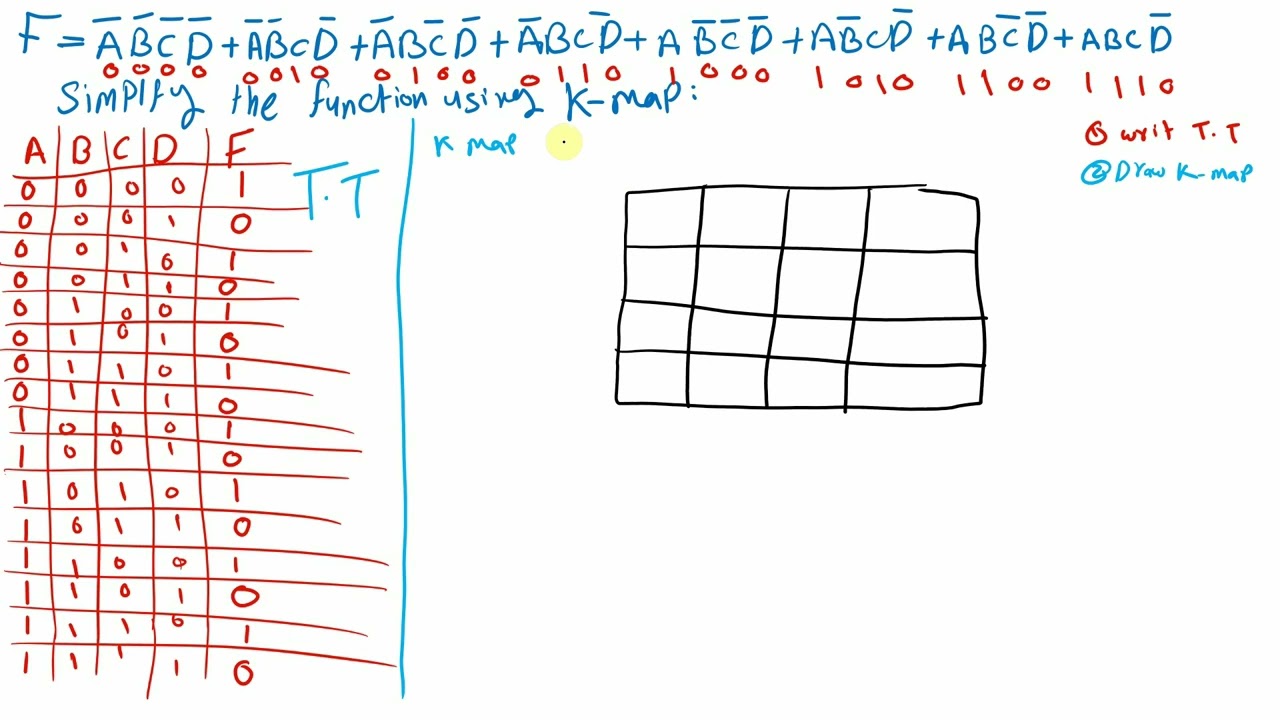 F = A̅ B̅ C̅ D̅ + A̅ B̅ C D̅ + A̅ B C̅ D̅ + A̅ B C D̅ + A B̅ C̅ D̅ + A B̅ C D̅ + A B C̅ D̅ + A B C D̅
0 0 0 0 0 0 1 0 0 1 0 0 0 1 1 0 1 0 0 0 1 0 1 0 1 1 0 0 1 1 1 0
Simplfy the function using K-map:
① writ T.T
② Draw K-map
K map
T.T
A B C D F
0 0 0 0 1
0 0 0 1 0
0 0 1 0 1
0 0 1 1 0
0 1 0 0 1
0 1 0 1 0
0 1 1 0 1
0 1 1 1 0
1 0 0 0 1
1 0 0 1 0
1 0 1 0 1
1 0 1 1 0
1 1 0 0 1
1 1 0 1 0
1 1 1 0 1
1 1 1 1 0